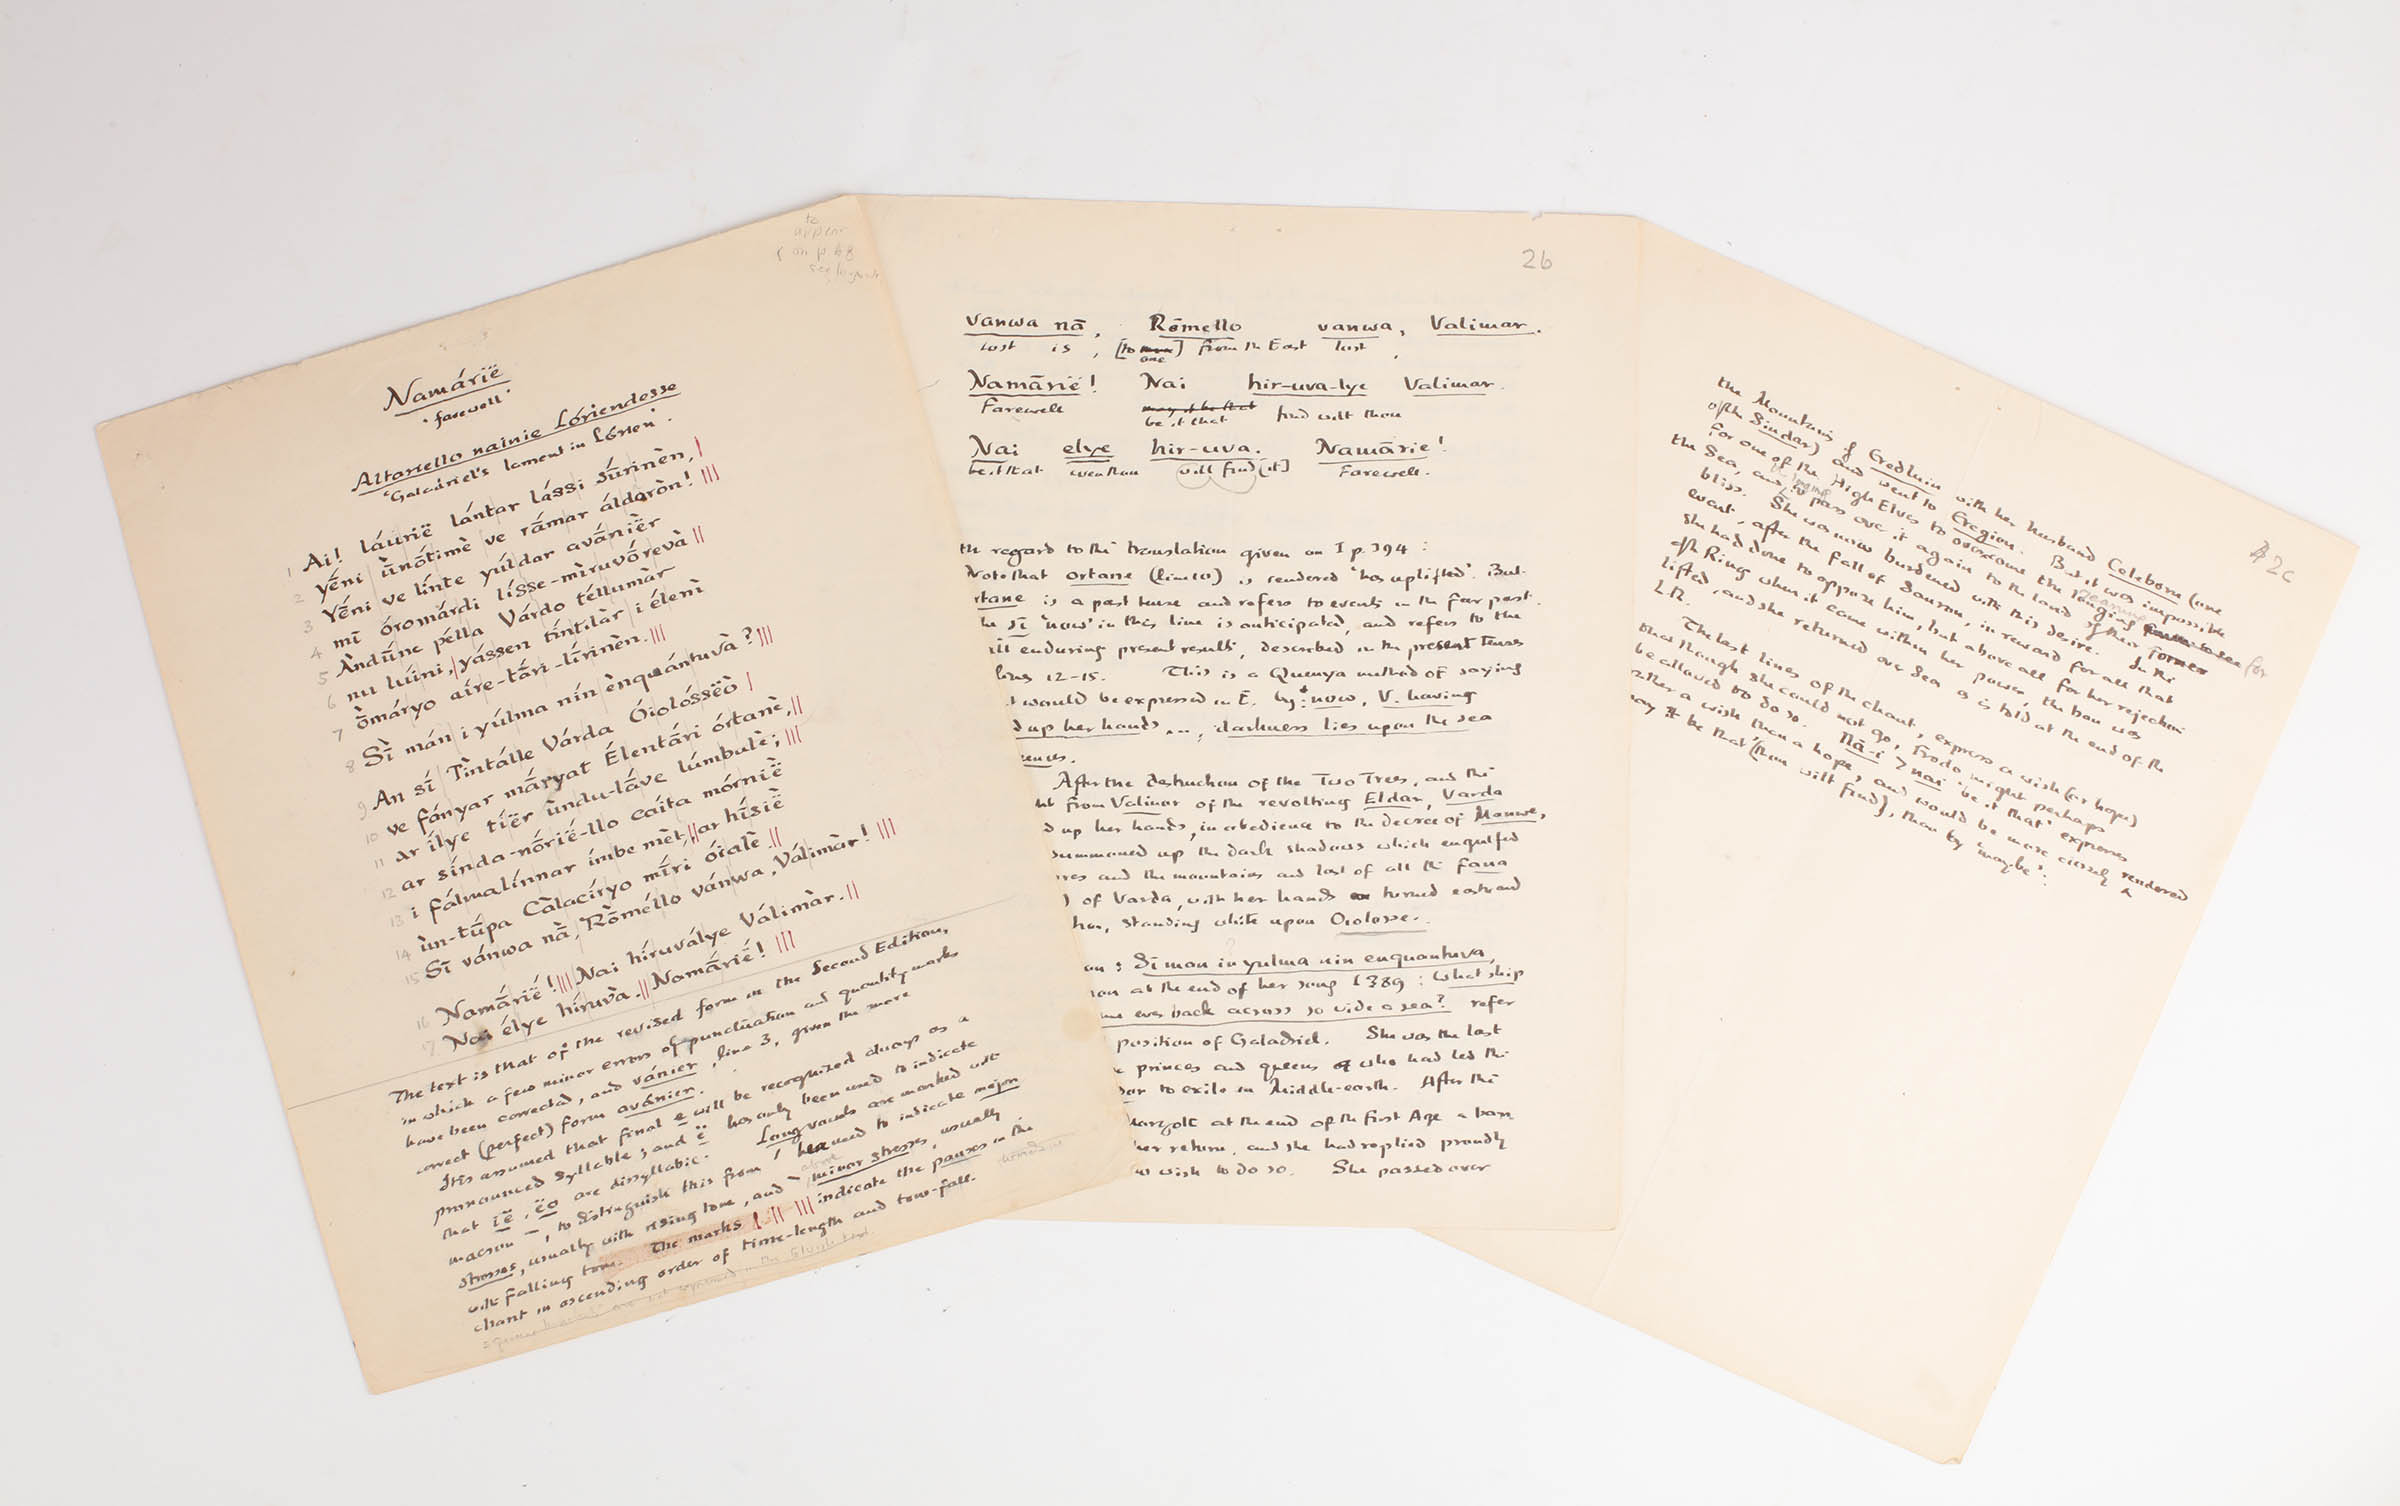 to
appear
on p. 68
see
Namárië
'farewell'
Altariello nainie Lóriendesse
'Galadriel's lament in Lórien'.
1 Ai! láurië lántar lássi sū́rinèn, |
2 Yḗni ùnṓtimè ve rā́mar áldaròn! |||
3 Yḗni ve lī́nte yúldar avā́nïër
4 mī óromárdi lísse-mìruvṓrevà ||
5 Àndū́ne pélla Várdo téllumàr
6 nu lúini, | yássen tíntilàr i élenì
7 ṑmáryo aíre-tā́ri-lī́rinèn. |||
8 Sī̀ mán i yúlma nín ènquántuvà? |||
9 An sī́ Tìntálle Várda Óiolóssëò |
10 ve fányar mā́ryat Élentā́ri órtanè, ||
11 ar ílye tíër ùndu-lā́ve lúmbulè; |||
12 ar sínda-nṓrië-llo caíta mórnïë
13 i fálmalínnar ímbe mèt, || ar hī́sïë
14 ùn-tū́pa Càlacíryo mī́ri óialè. ||
15 Sī vánwa nā̀, Rṑméllo vánwa, Válimàr! |||
16 Namā́rïë! ||| Nai híruválye Válimàr. ||
17 Nai élye híruvà. || Namā́rïë! |||
The text is that of the revised form in the Second Edition,
in which a few minor errors of punctuation and quantity marks
have been corrected, and vánier, line 3, given the more
correct (perfect) form avánier.
It is assumed that final e will be recognized always as a
pronounced syllable; and ë has only been used to indicate
that ië, ëo are disyllabic. Long vowels are marked with
macron ¯, to distinguish this from ´ here used to indicate major
stresses, usually with rising tone, and ` above minor stresses, usually
with falling tone. The marks | || ||| indicate the pauses in the
chant in ascending order of time-length and tone-fall.
26
vanwa nā, Rōmello vanwa, Valimar.
lost is, [to one] from the East lost,
Namārië! Nai hir-uva-lye Valimar.
Farewell may it be that find wilt thou
be it that
Nai elye hir-uva. Namārie!
be it that even thou will find [it] Farewell.
th regard to the translation given on I p. 394:
Note that ortane (line 10) is rendered 'has uplifted'. But
rtane is a past tense and refers to events in the far past.
he sī 'now' in this line is anticipated, and refers to the
ill enduring present results, described in the present tenses
lines 12-15. This is a Quenya method of saying
t would be expressed in E. by: now, V. having
d up her hands ...., darkness lies upon the sea
After the destruction of the Two Trees, and the
ht from Valinor of the revolting Eldar, Varda
d up her hands, in obedience to the decree of Manwe,
summoned up the dark shadows which engulfed
res and the mountains and last of all the fana
) of Varda, with her hands turned eastward
hon, standing white upon Oiolosse.
on: Sī man in yulma nin enquantuva,
ion at the end of her song I 389: What ship
me ever back across so wide a sea? refer
position of Galadriel. She was the last
e princes and queens who had led the
dor to exile in Middle-earth. After the
Margoth at the end of the First Age a ban
her return, and she had replied proudly
no wish to do so. She passed over
2c
the Mountains of Eredluin with her husband Celeborn (one
of the Sindar) and went to Eregion. But it was impossible
for one of the High Elves to overcome the yearning for
the Sea, and longing to pass over it again to the land of their former
bliss. She was now burdened with this desire. In the
event, after the fall of Sauron, in reward for all that
she had done to oppose him, but above all for her rejection
of the Ring when it came within her power, the ban was
lifted, and she returned over Sea as is told at the end of the
L.R.
The last lines of the chant, express a wish (or hope)
that though she could not go, Frodo might perhaps
be allowed to do so. Nā-i > nai 'be it that' expresses
rather a wish than a hope, and would be more closely rendered
may it be that (thou wilt find), than by 'maybe'.